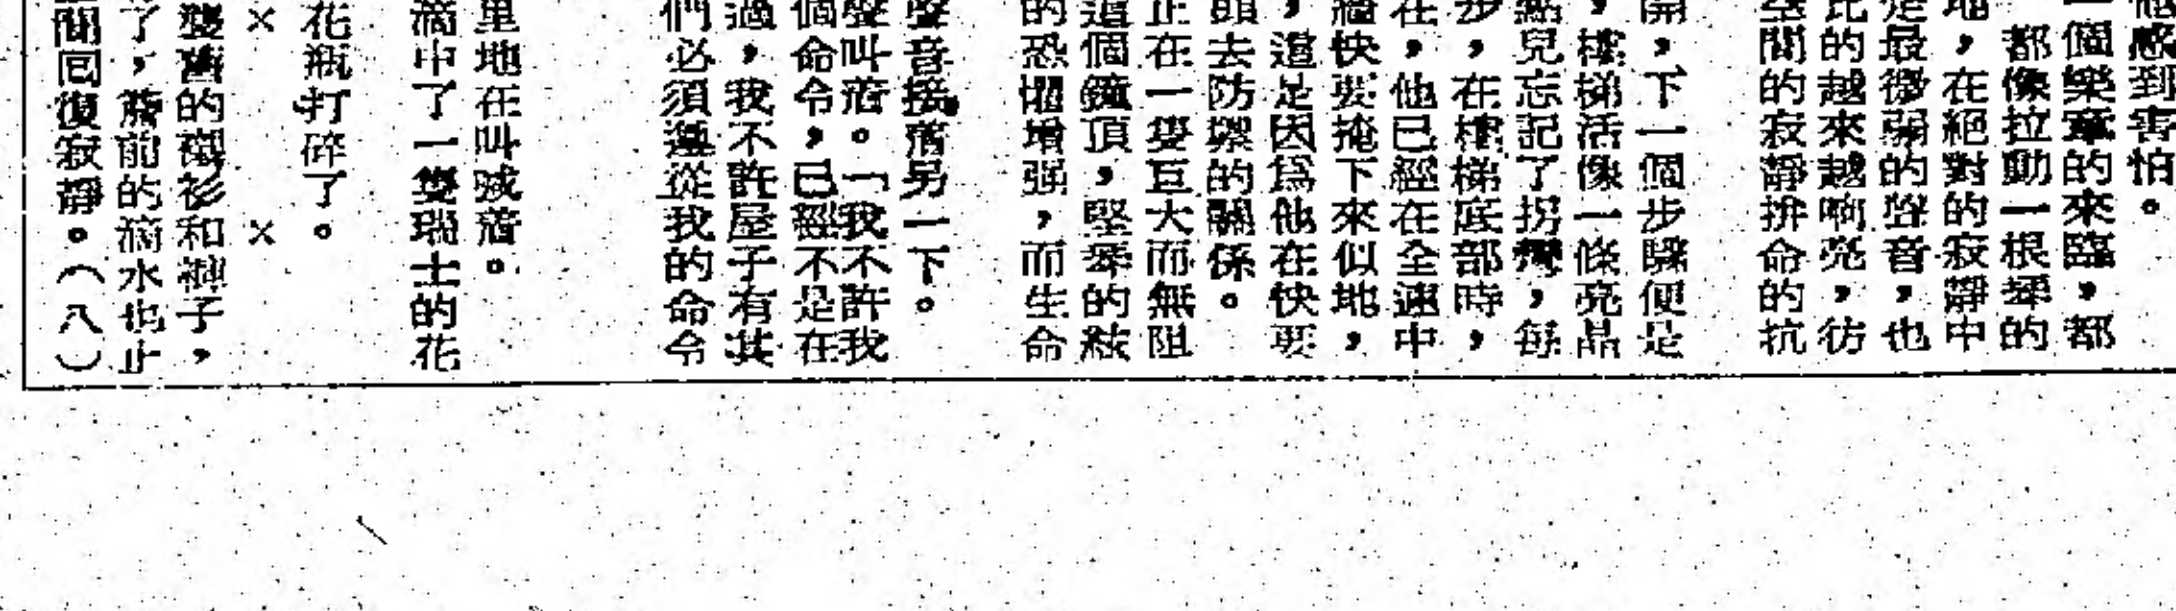 感到害怕。
一個樂章的來臨，都
都像拉動一根琴的
地，在絕對的寂靜中
是最微弱的聲音，也
比的越來越响亮，彷
空間的寂靜拚命的抗
開，下一個步驟便是
，樓梯活像一條亮晶
點兒忘記了拐彎，每
步，在樓梯底部時，
在，他已經在全速中
牆快要掩下來似地，
，這是因爲他在快要
頭去防禦的關係。
正在一隻巨大而無阻
這個鐘頂，堅琴的絃
的恐懼增强，而生命
聲音接着另一下。
聲叫着。「我不許我
個命令，已經不是在
過，我不許屋子有其
們必須遵從我的命令
里地在叫喊着。
滴中了一隻瑞士的花
花瓶打碎了。
× ×
襲舊的襯衫和褲子，
了，簷前的滴水也止
間回復寂靜。（八）